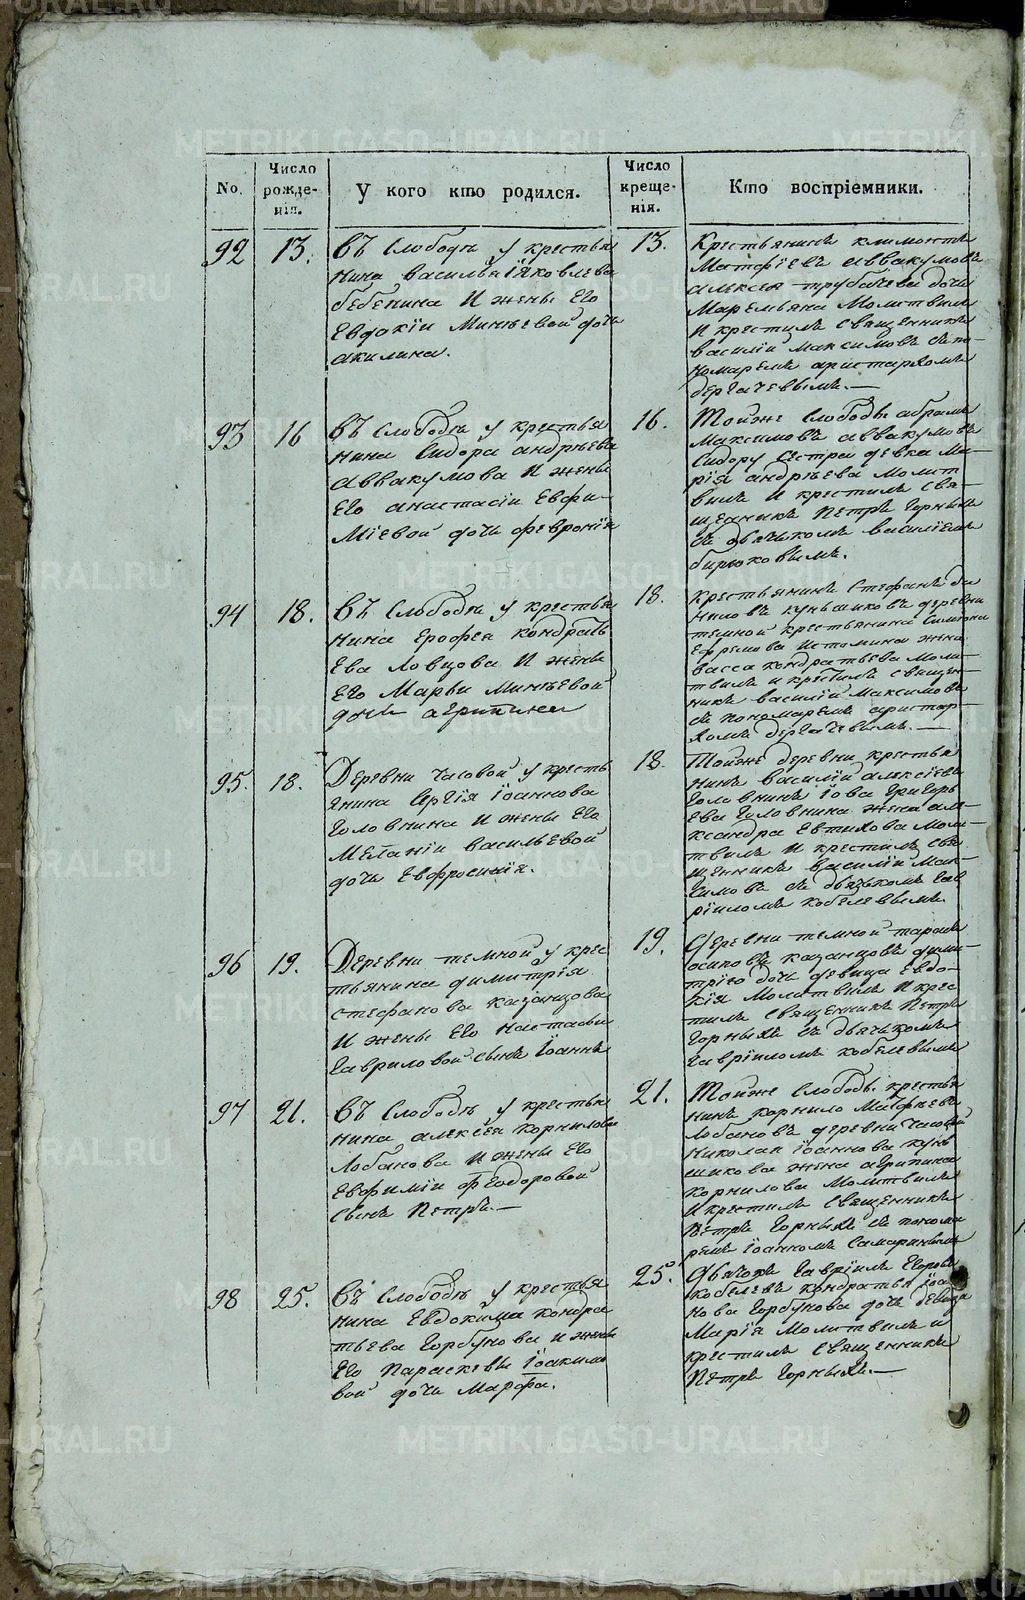 No.
Число рожде-нія.
У кого кто родился.
Число креще-нія.
Кто воспріемники.
92
13.
въ Слободѣ у крестья
нина Василья Яковлева
бебенина и жены его
Евдокіи Минѣевой дочь
акилина.
13.
Крестьянинъ климонтъ
Матфіевъ аввакумовъ
алексея трубачева дочь
Марельяна Молитвилъ
и крестилъ священникъ
василіи максимовъ съ по-
номаремъ аристархомъ
дергачевымъ.
93
16
въ Слободѣ у крестья
нина Сидора андрѣева
аввакумова и жены
его анастасіи Евфи-
міевой дочь февронія
16.
Тойже слободы абрамъ
максимовъ аввакумовъ
Сидору сестра девка Ма-
рія андрѣева молит
вилъ и крестилъ свя-
щенникъ Петръ Горныхъ
съ дьячькомъ василіемъ
бирюковымъ.
94
18.
въ Слободѣ у крестья
нина ерофея кондрать
ева Ловцова и жены
его Марьи Минѣевой
дочь агрипина
18.
крестьянинъ Стефанъ да
ниловъ куньщиковъ деревни
темной крестьянина Симиона
Ефремова Истомина жена
васса кондратьева моли-
твилъ и крестилъ священ-
никъ василіи максимовъ
съ пономаремъ аристар-
хомъ дергачевымъ.
95.
18.
Деревни часовой у кресть
янина Сергія Іоаннова
Головнина и жены его
Меланіи васильевой
дочь Евфросинія.
18.
Тойже деревни крестья
нинъ василій алексіевъ
Головнинъ Іова Григорь
ева Головнина жена але-
ксандра Евтихова моли-
твилъ и крестилъ свя
щенникъ василіи мак-
симовъ съ дьячькомъ Гав
ріиломъ кобелевымъ.
96
19.
Деревни темной у крес
тьянина димитрія
стефанова казанцова
и жены его настасьи
Гавриловой сынъ Іоаннъ
19.
Деревни темной тарасъ
осиповъ казанцовъ дими-
трію дочь девица Евдо-
кія Молитвилъ и крес
тилъ священникъ Петръ
Горныхъ съ дьячькомъ
Гавріиломъ кобелевымъ
97
21.
въ Слободѣ у крестья
нина алексея корнилова
Лобанова и жены его
Евфиміи Феодоровой
Сынъ Петръ.
21.
Тойже слободы крестья
нинъ корнило Матфіевъ
Лобановъ деревни часовой
Николая Іоаннова кунь
щикова жена агрипина
корнилова Молитвилъ
и крестилъ священникъ
Петръ Горныхъ съ понома
ремъ Іоанномъ Самаринымъ
98
25.
въ Слободѣ у крестья
нина Евдокима кондра
тьева Горбунова и жены
его Параскевы Іоакимо
вой дочь Марфа.
25.
Дьячокъ Гавріилъ Егоровъ
кобелевъ кондратья Іоан
нова Горбунова дочь девица
Марія Молитвилъ и
крестилъ священникъ
Петръ Горныхъ.